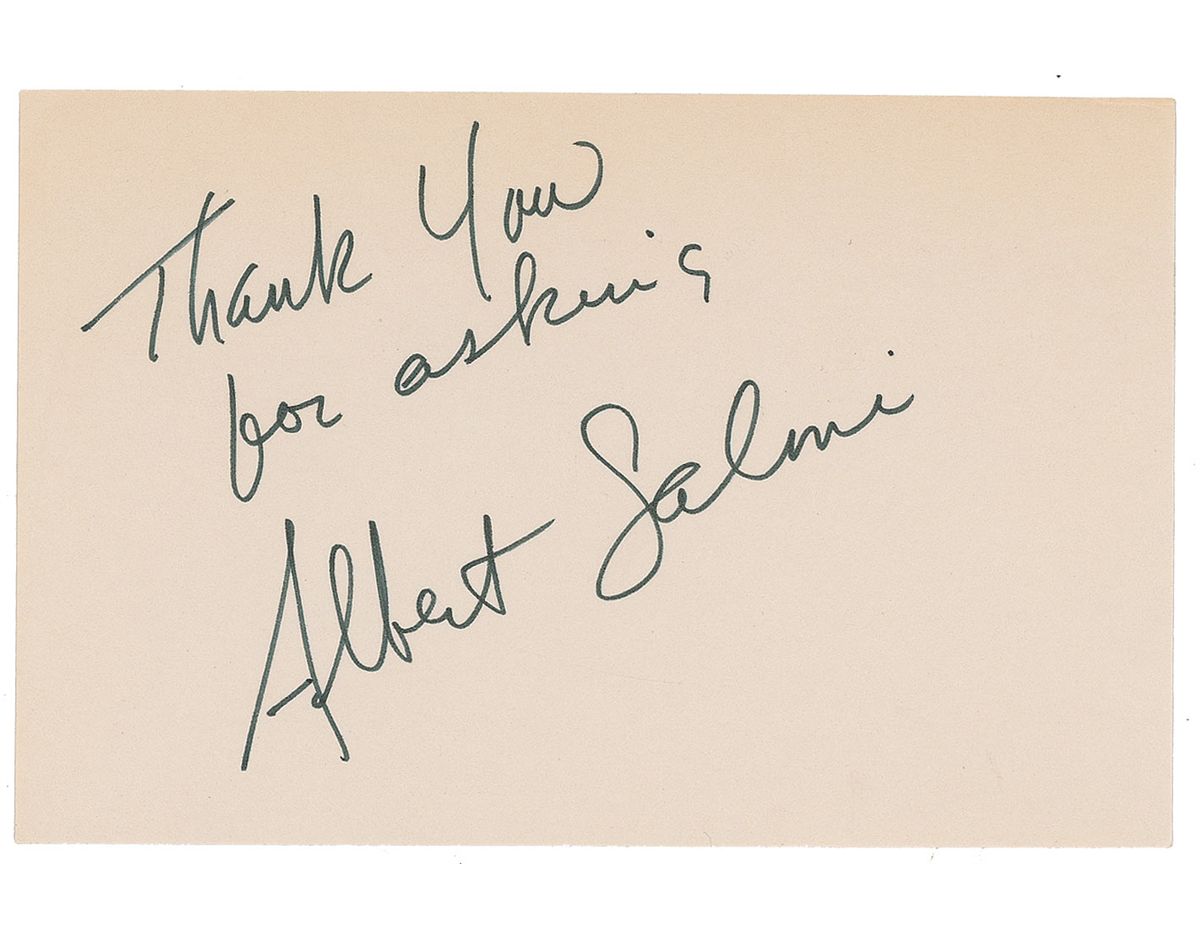 Thank You
for asking
Albert Salmi